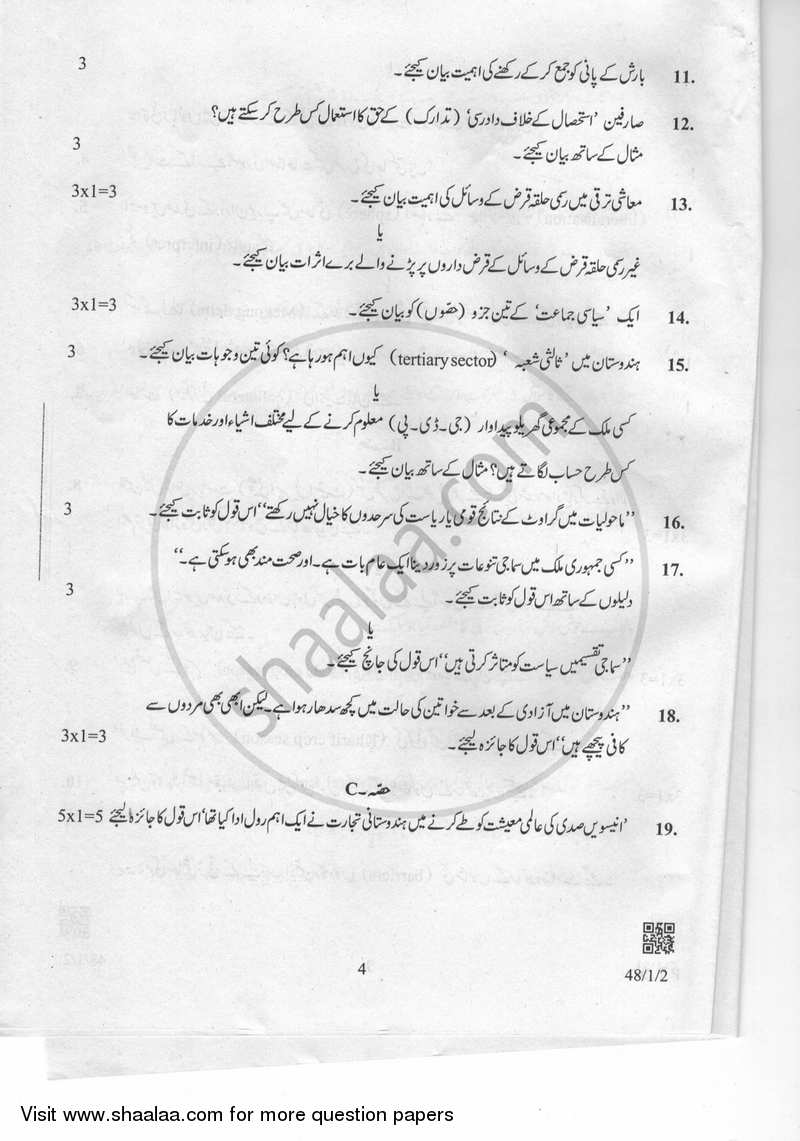 11. بارش کے پانی کو جمع کر کے رکھنے کی اہمیت بیان کیجئے۔ 3
12. صارفین ’استحصال کے خلاف دادرسی‘ (تدارک) کے حق کا استعمال کس طرح کر سکتے ہیں؟
مثال کے ساتھ بیان کیجئے۔ 3
13. معاشی ترقی میں رسمی حلقہ قرض کے وسائل کی اہمیت بیان کیجئے۔ 3x1=3
یا
غیر رسمی حلقہ قرض کے وسائل کے قرض داروں پر پڑنے والے برے اثرات بیان کیجئے۔
14. ایک ’سیاسی جماعت‘ کے تین جزو (حصّوں) کو بیان کیجئے۔ 3x1=3
15. ہندوستان میں ’ثالثی شعبہ‘ (tertiary sector) کیوں اہم ہو رہا ہے؟ کوئی تین وجوہات بیان کیجئے۔ 3
یا
کسی ملک کے مجموعی گھریلو پیداوار (جی۔ڈی۔پی) معلوم کرنے کے لیے مختلف اشیاء اور خدمات کا
کس طرح حساب لگاتے ہیں؟ مثال کے ساتھ بیان کیجئے۔
16. ’’ماحولیات میں گراوٹ کے نتائج قومی یا ریاست کی سرحدوں کا خیال نہیں رکھتے‘‘ اس قول کو ثابت کیجئے۔ 3
17. ’’کسی جمہوری ملک میں سماجی تنوعات پر زور دینا ایک عام بات ہے۔ اور صحت مند بھی ہو سکتی ہے۔‘‘
دلیلوں کے ساتھ اس قول کو ثابت کیجئے۔ 3
یا
’’سماجی تقسیمیں سیاست کو متاثر کرتی ہیں‘‘ اس قول کی جانچ کیجئے۔
18. ’’ہندوستان میں آزادی کے بعد سے خواتین کی حالت میں کچھ سدھار ہوا ہے۔ لیکن ابھی بھی مردوں سے
کافی پیچھے ہیں‘‘ اس قول کا جائزہ لیجئے۔ 3x1=3
حصّہ۔C
19. ’انیسویں صدی کی عالمی معیشت کو طے کرنے میں ہندوستانی تجارت نے ایک اہم رول ادا کیا تھا‘ اس قول کا جائزہ لیجئے 5x1=5
4
48/1/2
shaalaa.com
Visit www.shaalaa.com for more question papers